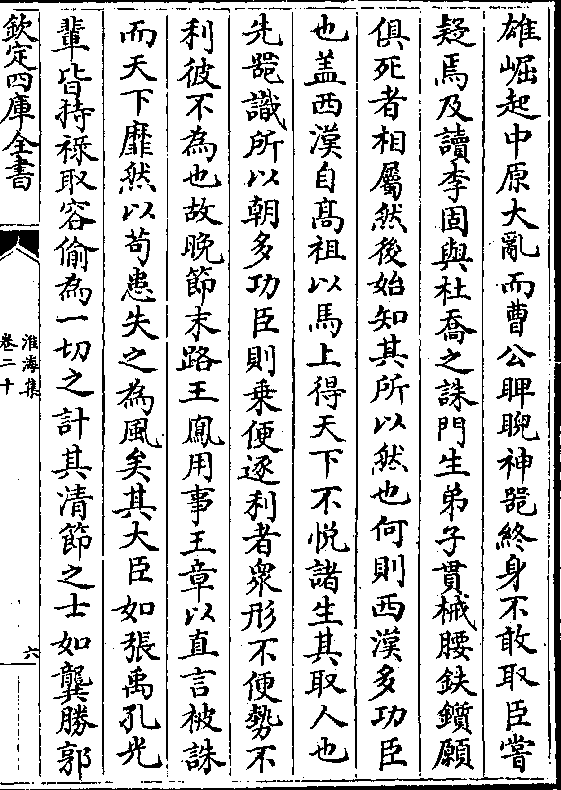 雄崛起中原大亂而曹公睥睨神器終身不敢取臣嘗
疑焉及讀李固與杜喬之誅門生弟子貫械腰鈇鑕願
俱死者相屬然後始知其所以然也何則西漢多功臣
也盖西漢自髙祖以馬上得天下不悅諸生其取人也
先器識所以朝多功臣則乗便逐利者衆形不便勢不
利彼不為也故晚節末路王鳳用事王章以直言被誅
而天下靡然以苟患失之為風矣其大臣如張禹孔光
輩皆持祿取容偷為一切之計其清節之士如龔勝郭
欽定四庫全書
淮海集
卷二十
六